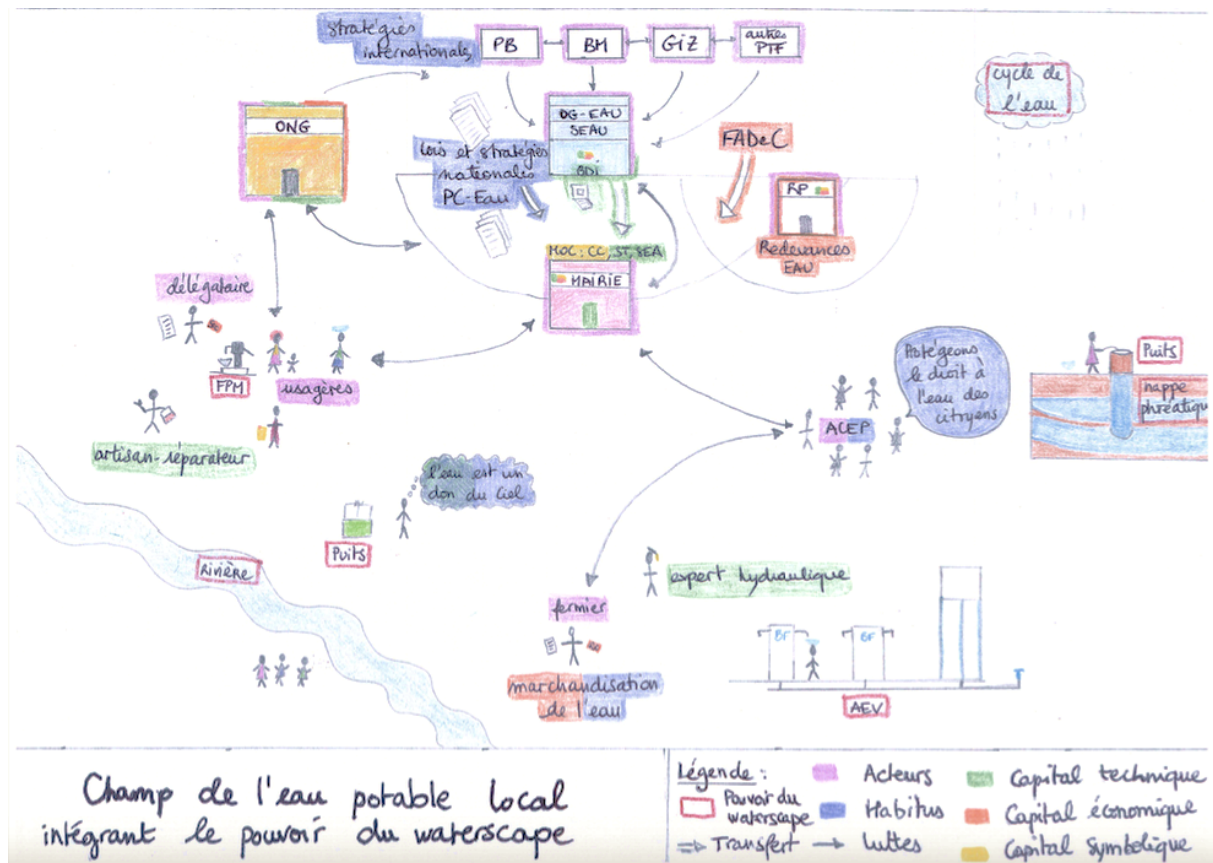 stratégies
internationales
PB
BM
GiZ
autres
PTF
cycle de
l'eau
ONG
DG-EAU
SEAU
BDI
lois et stratégies
nationales
PC-Eau
FADeC
RP
Redevances
EAU
MOC: CC, ST, SEA
MAIRIE
délégataire
FPM
usagères
artisan-réparateur
Protégeons
le droit à
l'eau des
citoyens
ACEP
Puits
nappe
phréatique
l'eau est un
don du ciel
Puits
Rivière
expert hydraulique
fermier
marchandisation
de l'eau
BF
BF
AEV
Champ de l'eau potable local
intégrant le pouvoir du waterscape
Légende :
Pouvoir du
waterscape
Transfert
Acteurs
Habitus
luttes
Capital technique
Capital économique
Capital symbolique